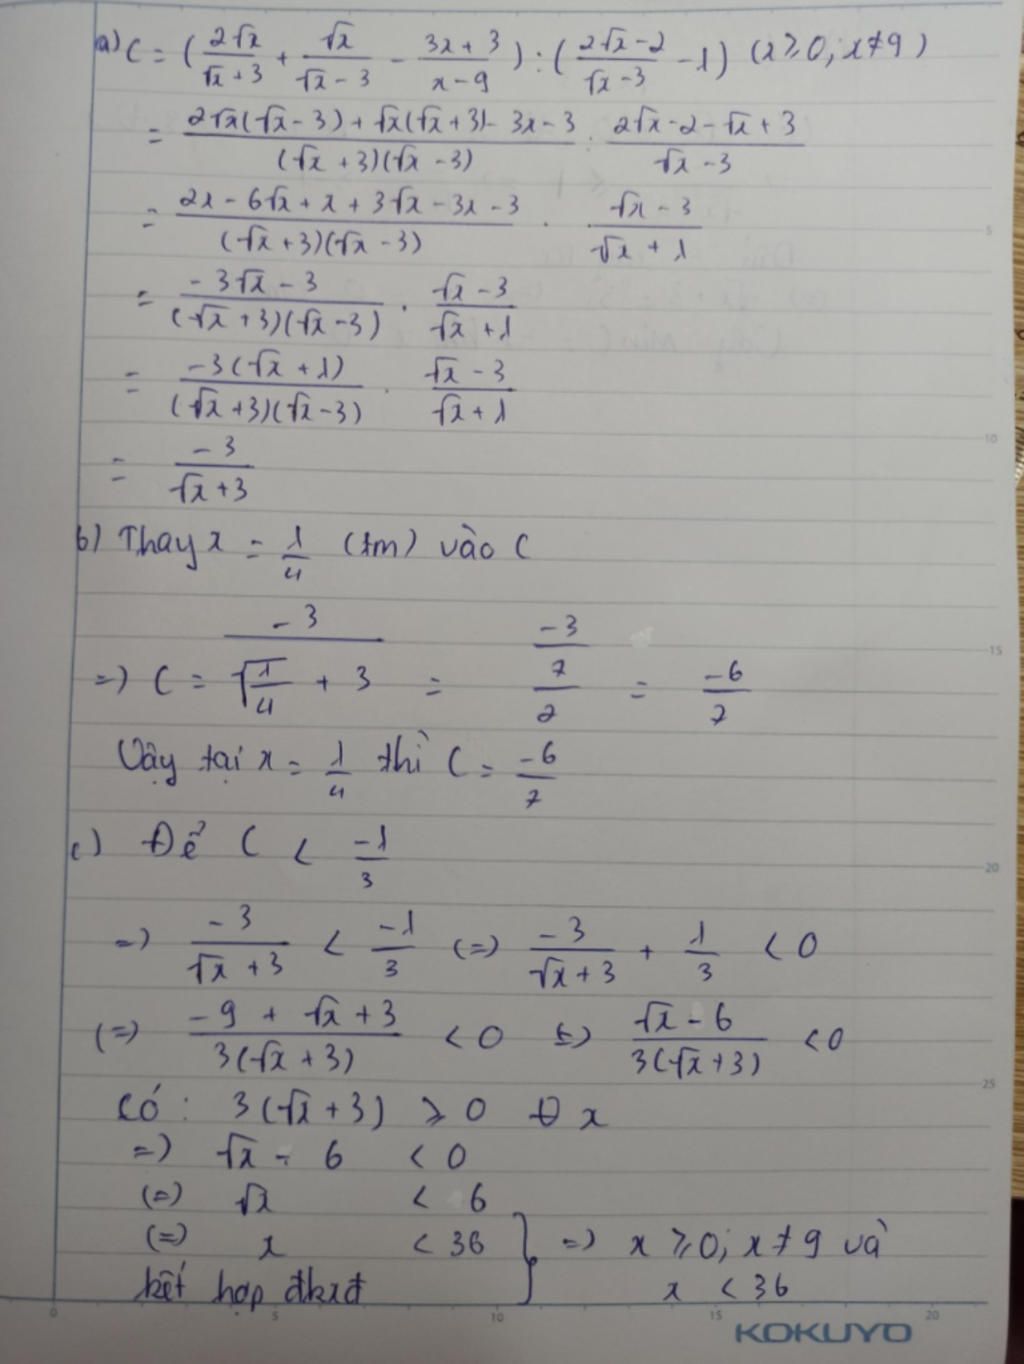 a) C = ( 2√x / √x + 3 + √x / √x - 3 - 3x + 3 / x - 9 ) : ( 2√x - 2 / √x - 3 - 1 ) (x ≥ 0; x ≠ 9)
= 2√x(√x - 3) + √x(√x + 3) - 3x - 3 / (√x + 3)(√x - 3) : 2√x - 2 - √x + 3 / √x - 3
= 2x - 6√x + x + 3√x - 3x - 3 / (√x + 3)(√x - 3) . √x - 3 / √x + 1
= -3√x - 3 / (√x + 3)(√x - 3) . √x - 3 / √x + 1
= -3(√x + 1) / (√x + 3)(√x - 3) . √x - 3 / √x + 1
= -3 / √x + 3
b) Thay x = 1/4 (tm) vào C
=> C = -3 / √1/4 + 3 = -3 / 7/2 = -6/7
Vậy tại x = 1/4 thì C = -6/7
c) Để C < -1/3
=> -3 / √x + 3 < -1/3 (=) -3 / √x + 3 + 1/3 < 0
(=) -9 + √x + 3 / 3(√x + 3) < 0 (=) √x - 6 / 3(√x + 3) < 0
Có: 3(√x + 3) ≥ 0 ∀ x
=> √x - 6 < 0
(=) √x < 6
(=) x < 36 } => x ≥ 0; x ≠ 9 và
kết hợp đkxđ x < 36
0 5 10 15 20
5
10
15
20
25
KOKUYO